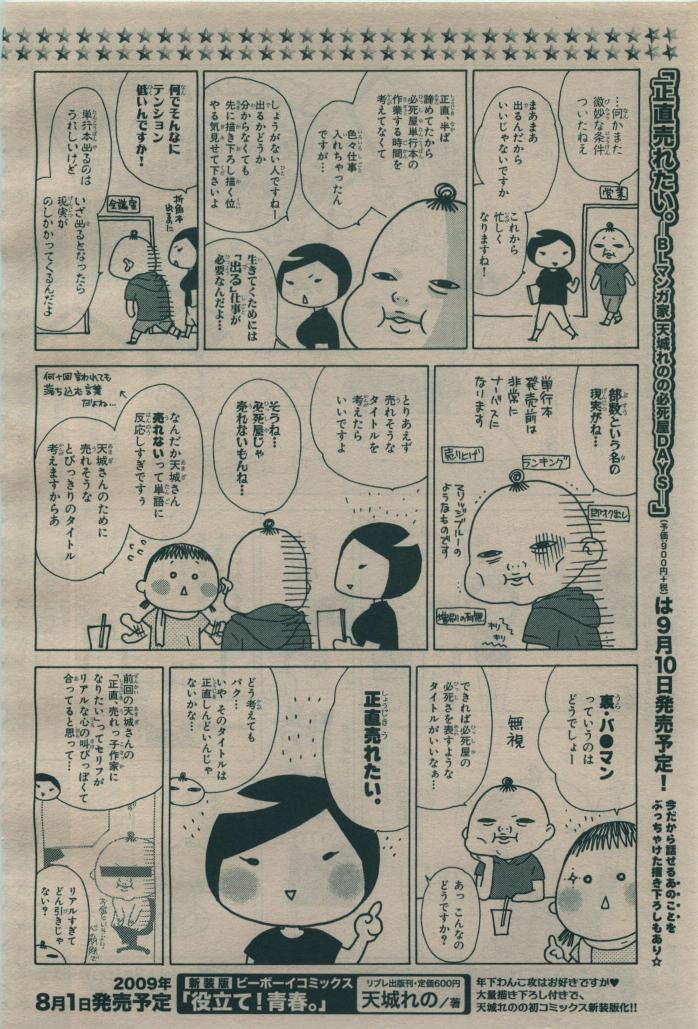 『正直売れたい。―BLマンガ家天城れのの必死屋DAYS―』(予価900円+税)は9月10日発売予定!
今だから話せるあのことを
ぶっちゃけた描き下ろしもあり☆
…何かまた
微妙な条件
ついたねえ
営業
まあまあ
出るんだから
いいじゃないですか
これから
忙しく
なりますね!
正直、半ば
諦めてたから
必死屋単行本の
作業する時間を
考えてなくて
色々仕事
入れちゃったん
ですが…
しょうがない人ですねー
出るかどうか
分からなくても
先に描き下ろし描く位
やる気見せて下さいよ
生きてくためには
「出る」仕事が
必要なんだよ…
何でそんなに
テンション
低いんですか!
折角本
出るのに
会議室
単行本出るのは
うれしいけど
いざ出るとなったら
現実が
のしかかってくるんだよ
部数という名の
現実がね…
単行本
発売前は
非常に
ナーバスに
なります
売り上げ
ランキング
即オク出し
マリッジブルーの
ようなものです
キリ
キリ
とりあえず
売れそうな
タイトルを
考えたら
いいですよ
そうね…
必死屋じゃ
売れないもんね…
なんだか天城さん
売れないって単語に
反応しすぎですぅ
何十回言われても
落ち込む言葉
だよね…
天城さんのために
売れそうな
とびっきりのタイトル
考えますからあ
裏・バ●マン
っていうのは
どうでしょー
無視
できれば必死屋の
必死さを表すような
タイトルがいいなぁ…
あっ こんなの
どうですか?
正直売れたい。
どう考えても
パク…
いや そのタイトルは
正直しんどいんじゃ
ないかな…
前回の天城さんの
「正直、売れっ子作家に
なりたい」ってセリフが
リアルな心の叫びっぽくて
合ってると思って…
リアルすぎて
どん引きじゃ
ない?
年下わんこ攻はお好きですか♥
大量描き下ろし付きで、
天城れのの初コミックス新装版化!!
2009年
8月1日発売予定
新装版 ビーボーイコミックス
「役立て!青春。」
リブレ出版刊・定価600円
天城れの/著